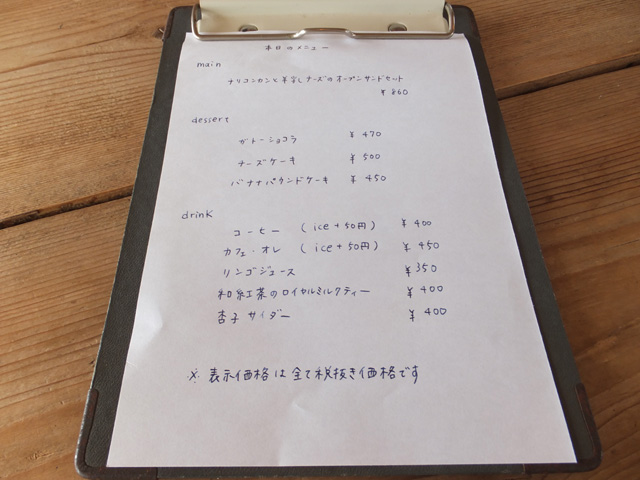 本日のメニュー
main
チリコンカンと羊蒸しチーズのオープンサンドセット
¥ 860
dessert
ガトーショコラ ¥ 470
チーズケーキ ¥ 500
バナナパウンドケーキ ¥ 450
drink
コーヒー (ice+50円) ¥ 400
カフェ・オレ (ice+50円) ¥ 450
リンゴジュース ¥350
和紅茶のロイヤルミルクティー ¥ 400
杏子サイダー ¥ 400
※ 表示価格は全て税抜き価格です